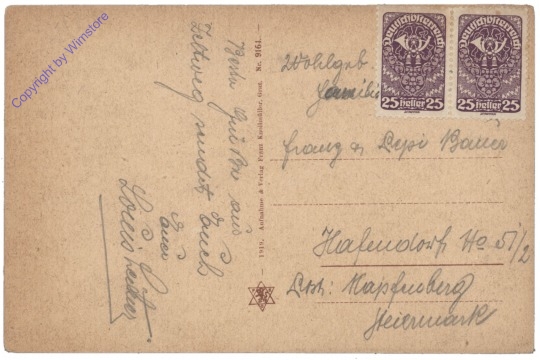 Copyright by Wimstore
aus
Zeltweg sendet Euch
Euer
1919. Aufnahme & Verlag Franz Knollmüller, Graz. Nr. 9161.
Deutschösterreich
25 Heller 25
Deutschösterreich
25 Heller 25
Wohlgeb.
Familie
Franz & Pepi Bauer
Hafendorf No 51/2
Pst: Kapfenberg
Steiermark